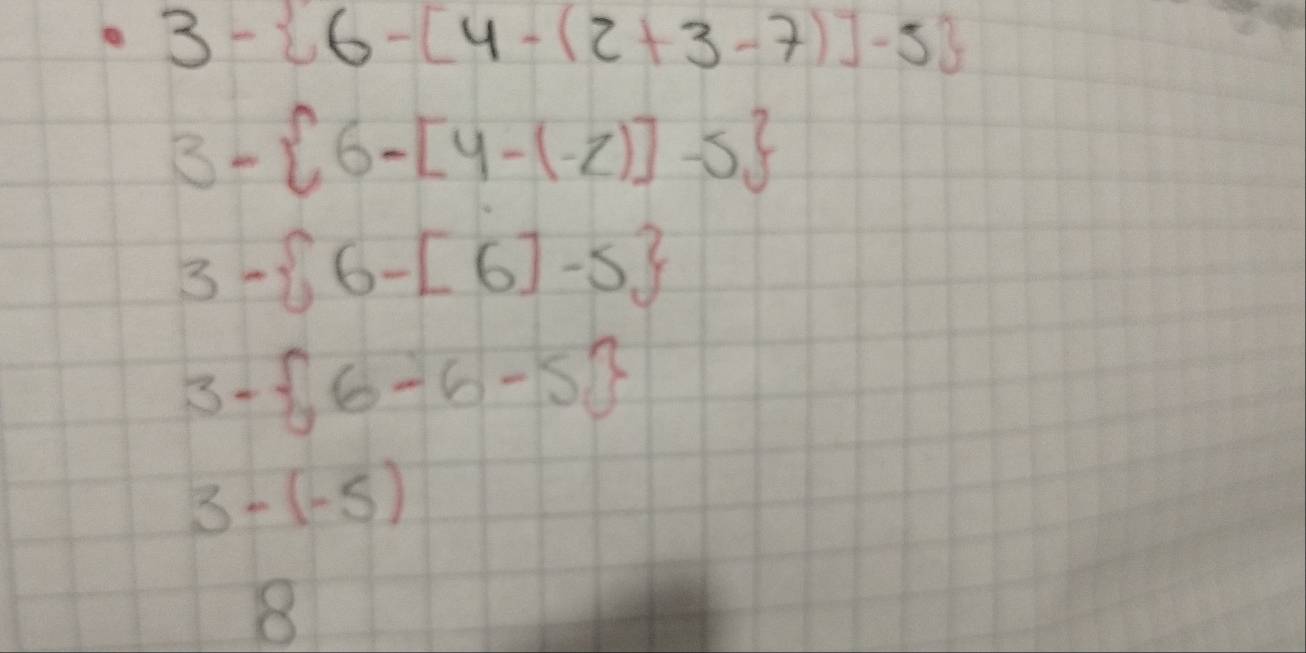 • 3-{6-[4-(2+3-7)]-5}
3-{6-[4-(-2)]-5}
3-{6-[6]-5}
3-{6-6-5}
3-(-5)
8